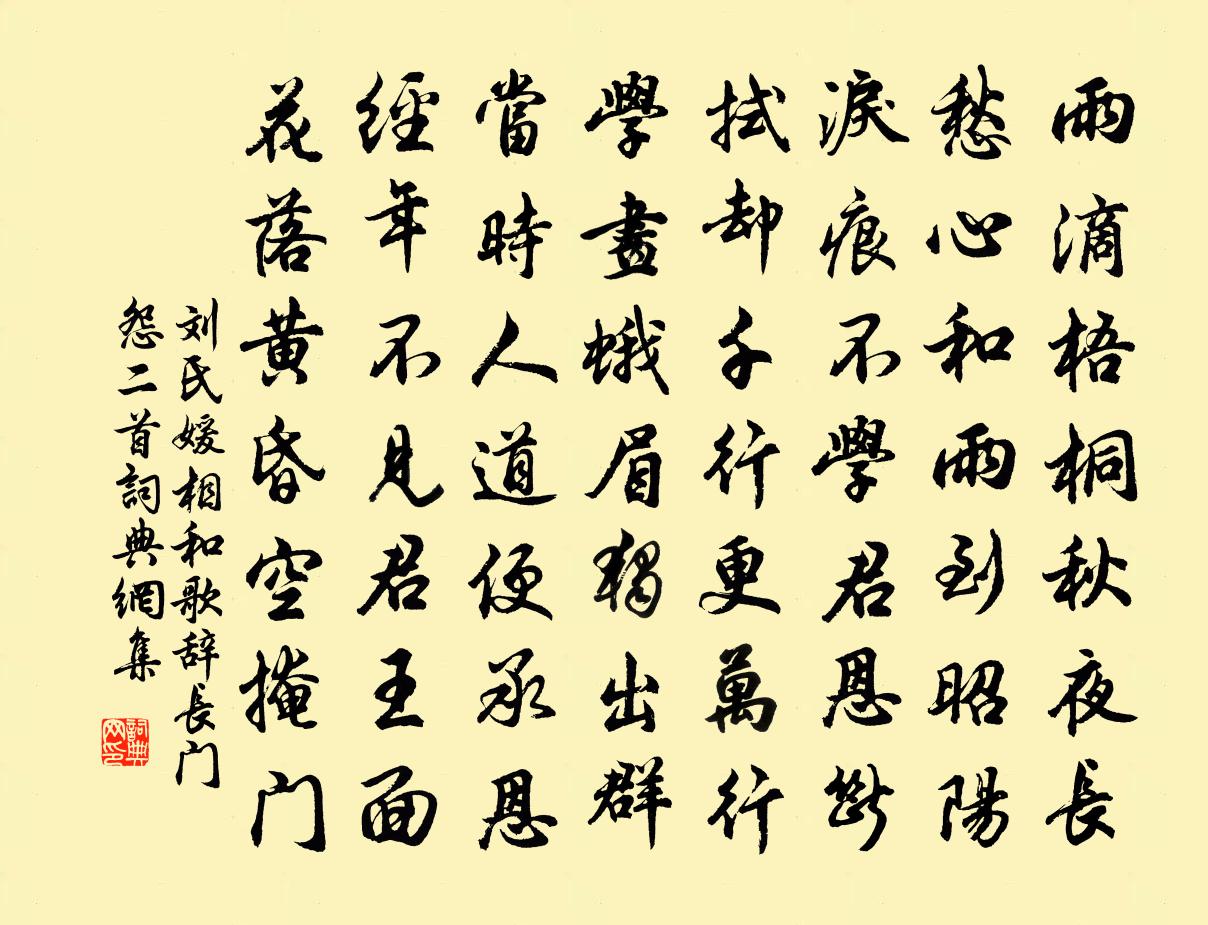 雨滴梧桐秋夜長
愁心和雨到昭陽
淚痕不學君恩斷
拭却千行更萬行
學畫蛾眉獨出群
當時人道便承恩
經年不見君王面
花落黃昏空掩门
刘氏媛相和歌辞長门
怨二首詞典網集